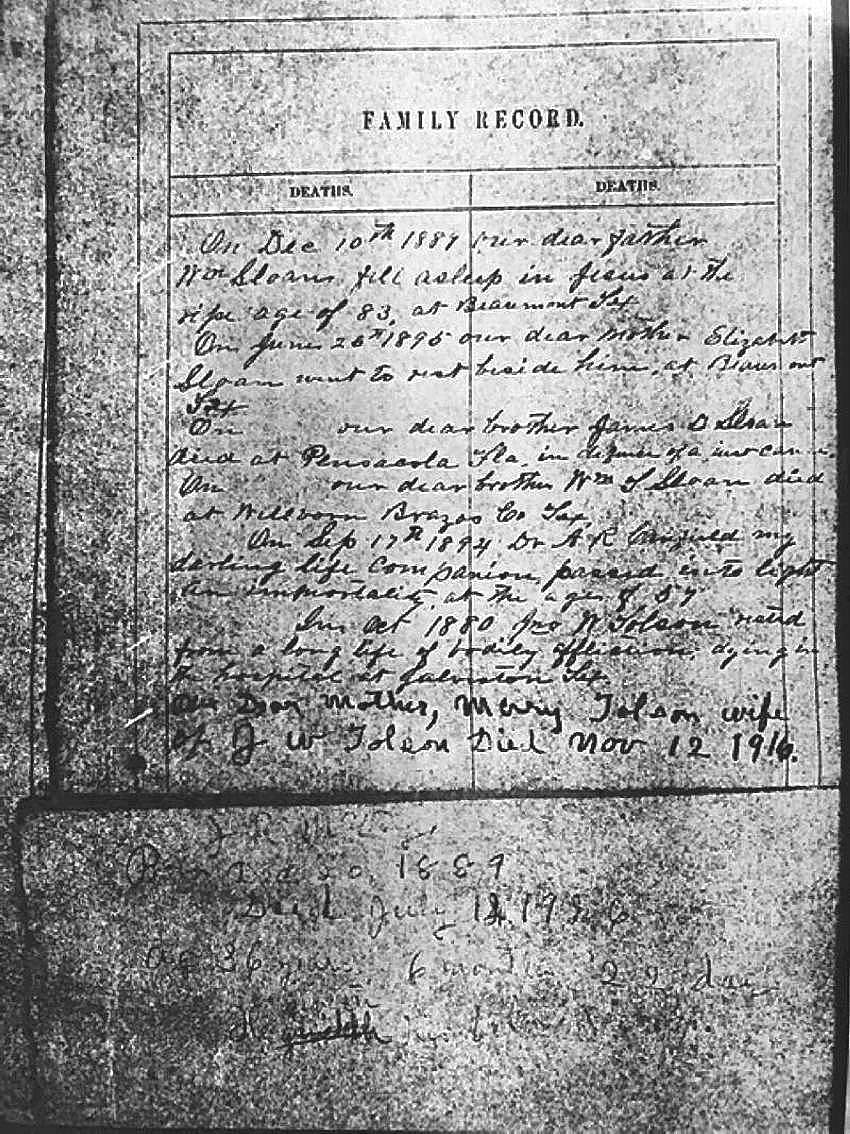 FAMILY RECORD.
DEATHS. DEATHS.
On Dec 10th 1889 our dear father
Wm Sloan, fell asleep in Jesus at the
ripe age of 83, at Beaumont Tex
On June 26th 1895 our dear mother Elizabeth
Sloan went to rest beside him, at Beaumont
Tex
On our dear brother James D Sloan
died at Pensacola Fla, in defence of a
On our dear brother Wm S Sloan died
at Wellborn Brazos Co Tex,
On Sep 17th 1894, Dr A R my
darling life companion, passed into light
an immortality, at the age of 57
In Oct 1880 Jno W Tolson rested
from a long life of bodily affliction, dying in
the hospital at Galveston Tex
Our Dear Mother, Merry Tolson wife
of J W Tolson Died Nov 12 1916.
1889
Died July 1926
Age 36 years, 6 months 22 days